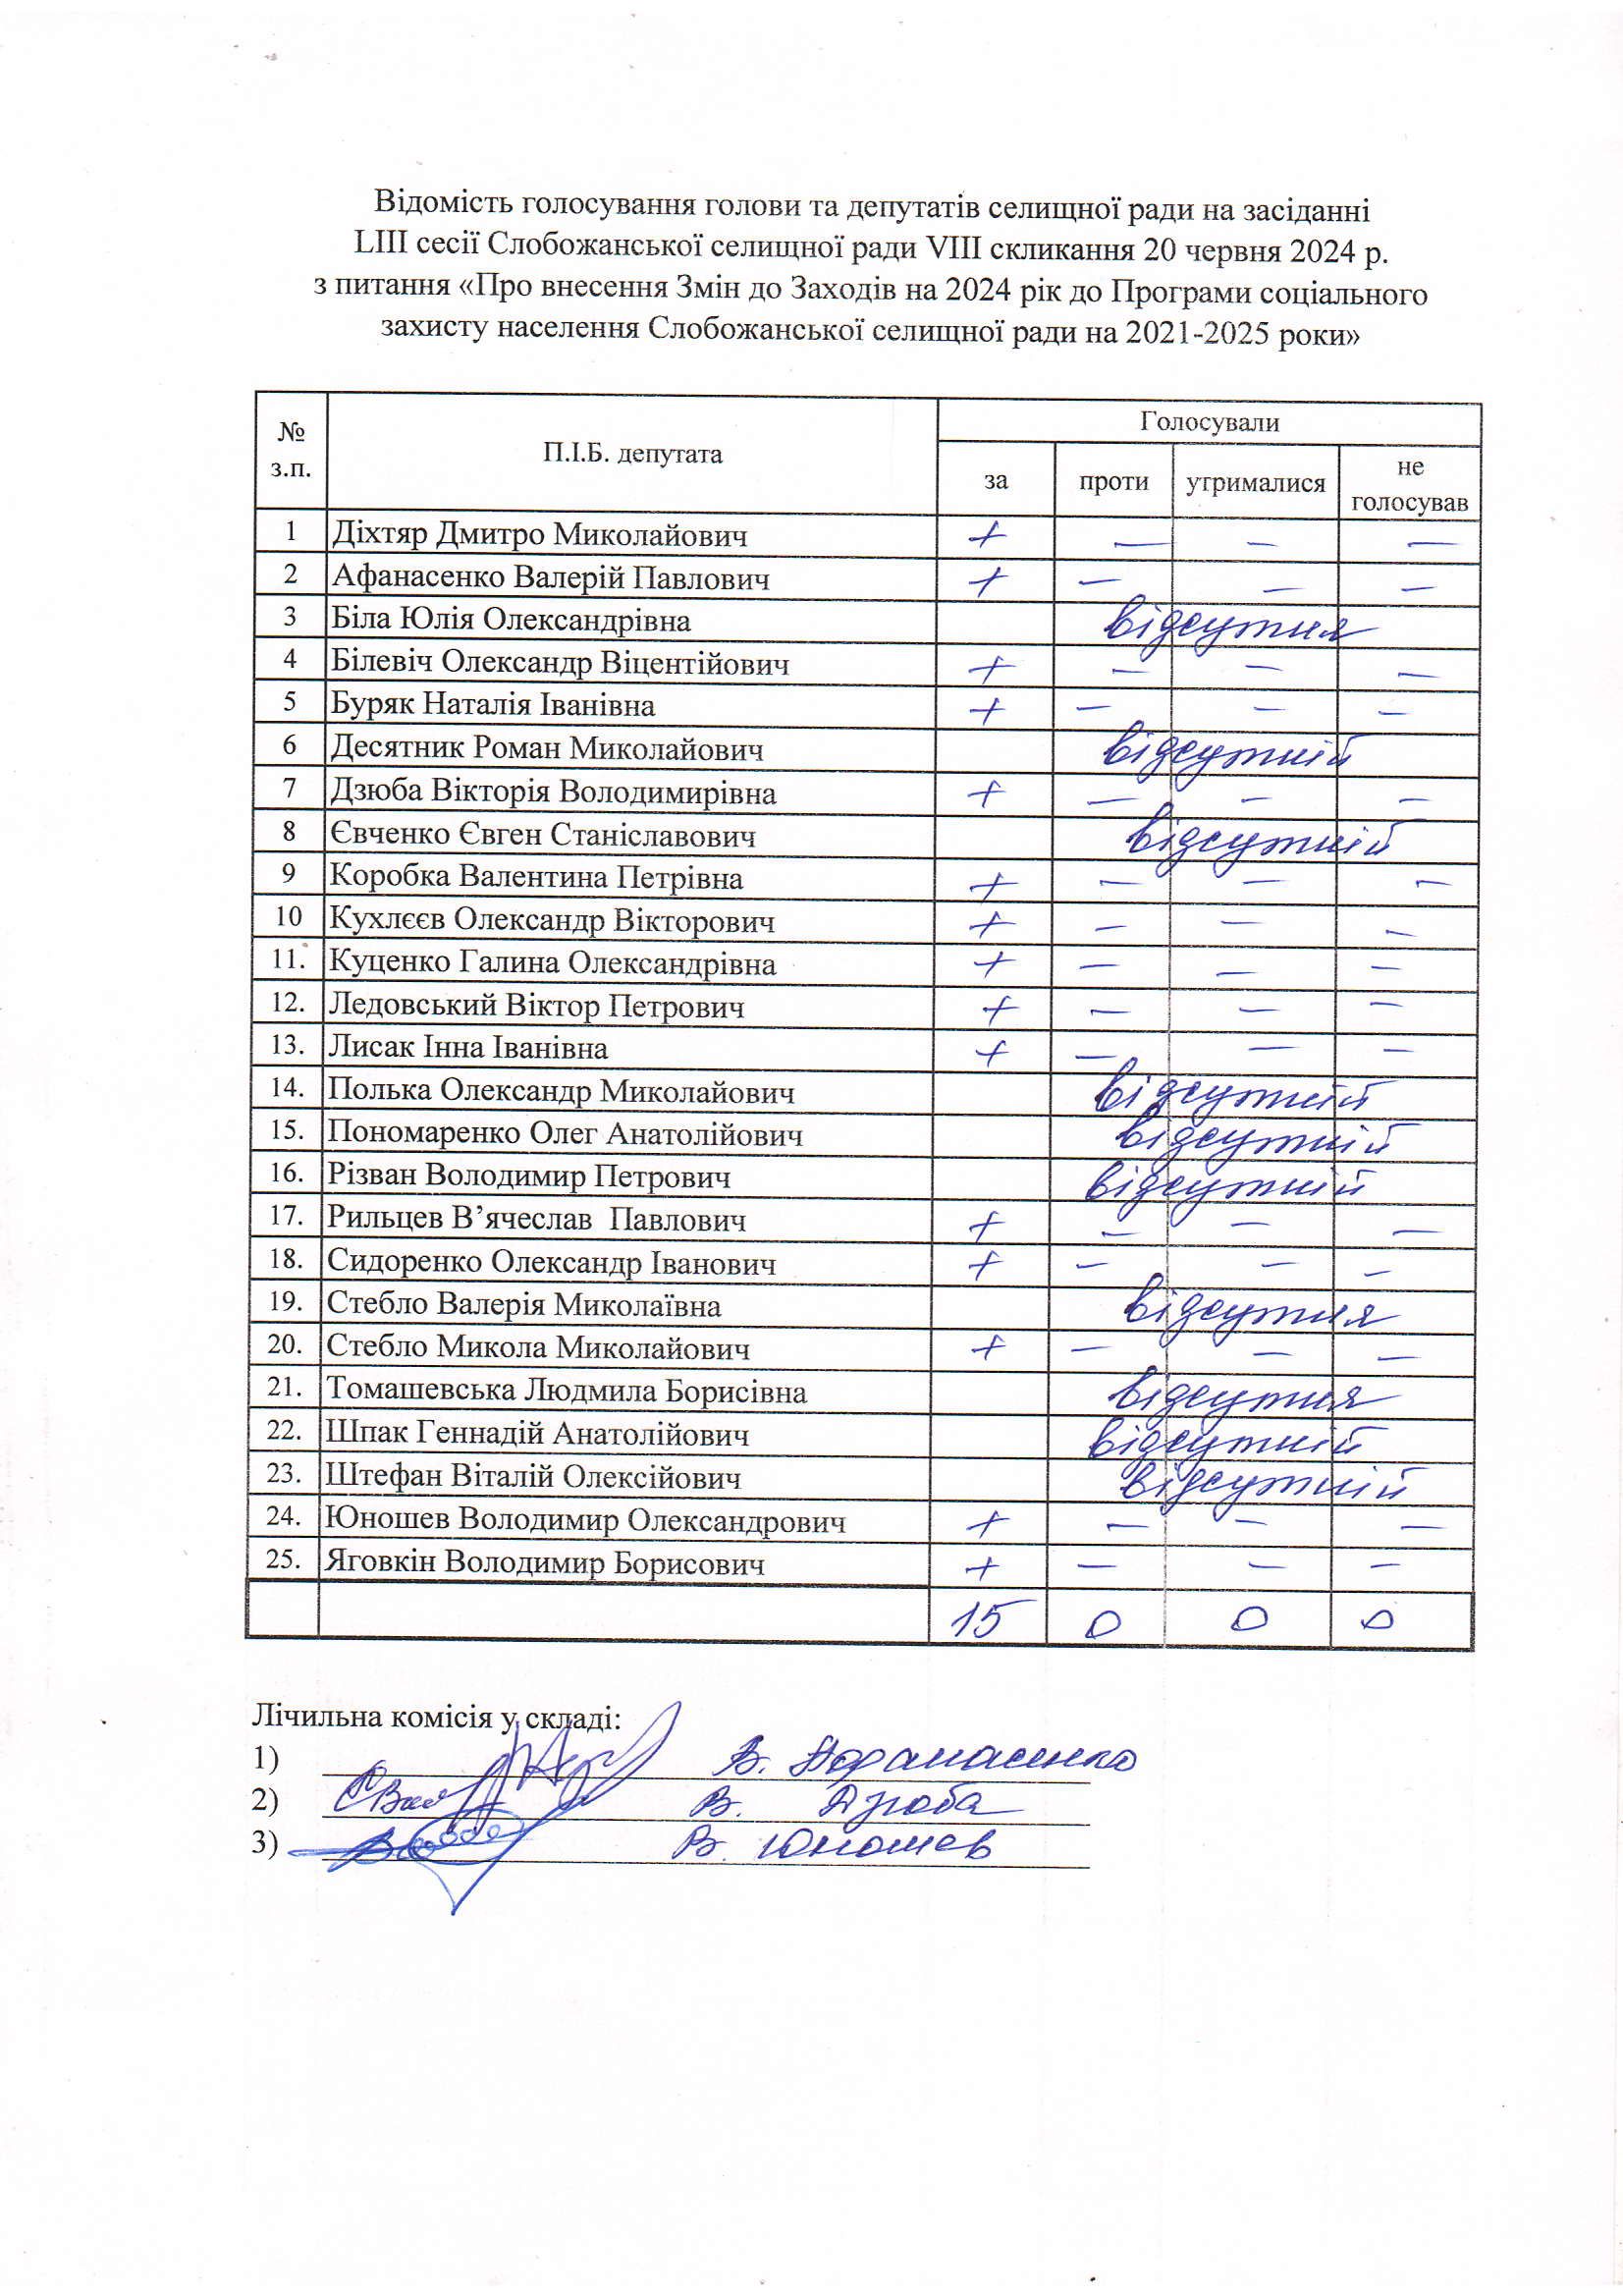 Відомість голосування голови та депутатів селищної ради на засіданні
LIII сесії Слобожанської селищної ради VIII скликання 20 червня 2024 р.
з питання «Про внесення Змін до Заходів на 2024 рік до Програми соціального
захисту населення Слобожанської селищної ради на 2021-2025 роки»
№ з.п. П.І.Б. депутата Голосували
за проти утрималися не голосував
1 Діхтяр Дмитро Миколайович + — — —
2 Афанасенко Валерій Павлович + — — —
3 Біла Юлія Олександрівна відсутня
4 Білевіч Олександр Віцентійович + — — —
5 Буряк Наталія Іванівна + — — —
6 Десятник Роман Миколайович відсутній
7 Дзюба Вікторія Володимирівна + — — —
8 Євченко Євген Станіславович відсутній
9 Коробка Валентина Петрівна + — — —
10 Кухлєєв Олександр Вікторович + — — —
11. Куценко Галина Олександрівна + — — —
12. Ледовський Віктор Петрович + — — —
13. Лисак Інна Іванівна + — — —
14. Полька Олександр Миколайович відсутній
15. Пономаренко Олег Анатолійович відсутній
16. Різван Володимир Петрович відсутній
17. Рильцев В’ячеслав Павлович + — — —
18. Сидоренко Олександр Іванович + — — —
19. Стебло Валерія Миколаївна відсутня
20. Стебло Микола Миколайович + — — —
21. Томашевська Людмила Борисівна відсутня
22. Шпак Геннадій Анатолійович відсутній
23. Штефан Віталій Олексійович відсутній
24. Юношев Володимир Олександрович + — — —
25. Яговкін Володимир Борисович + — — —
15 0 0 0
Лічильна комісія у складі:
1) В. Афанасенко
2) В. Дзюба
3) В. Юношев